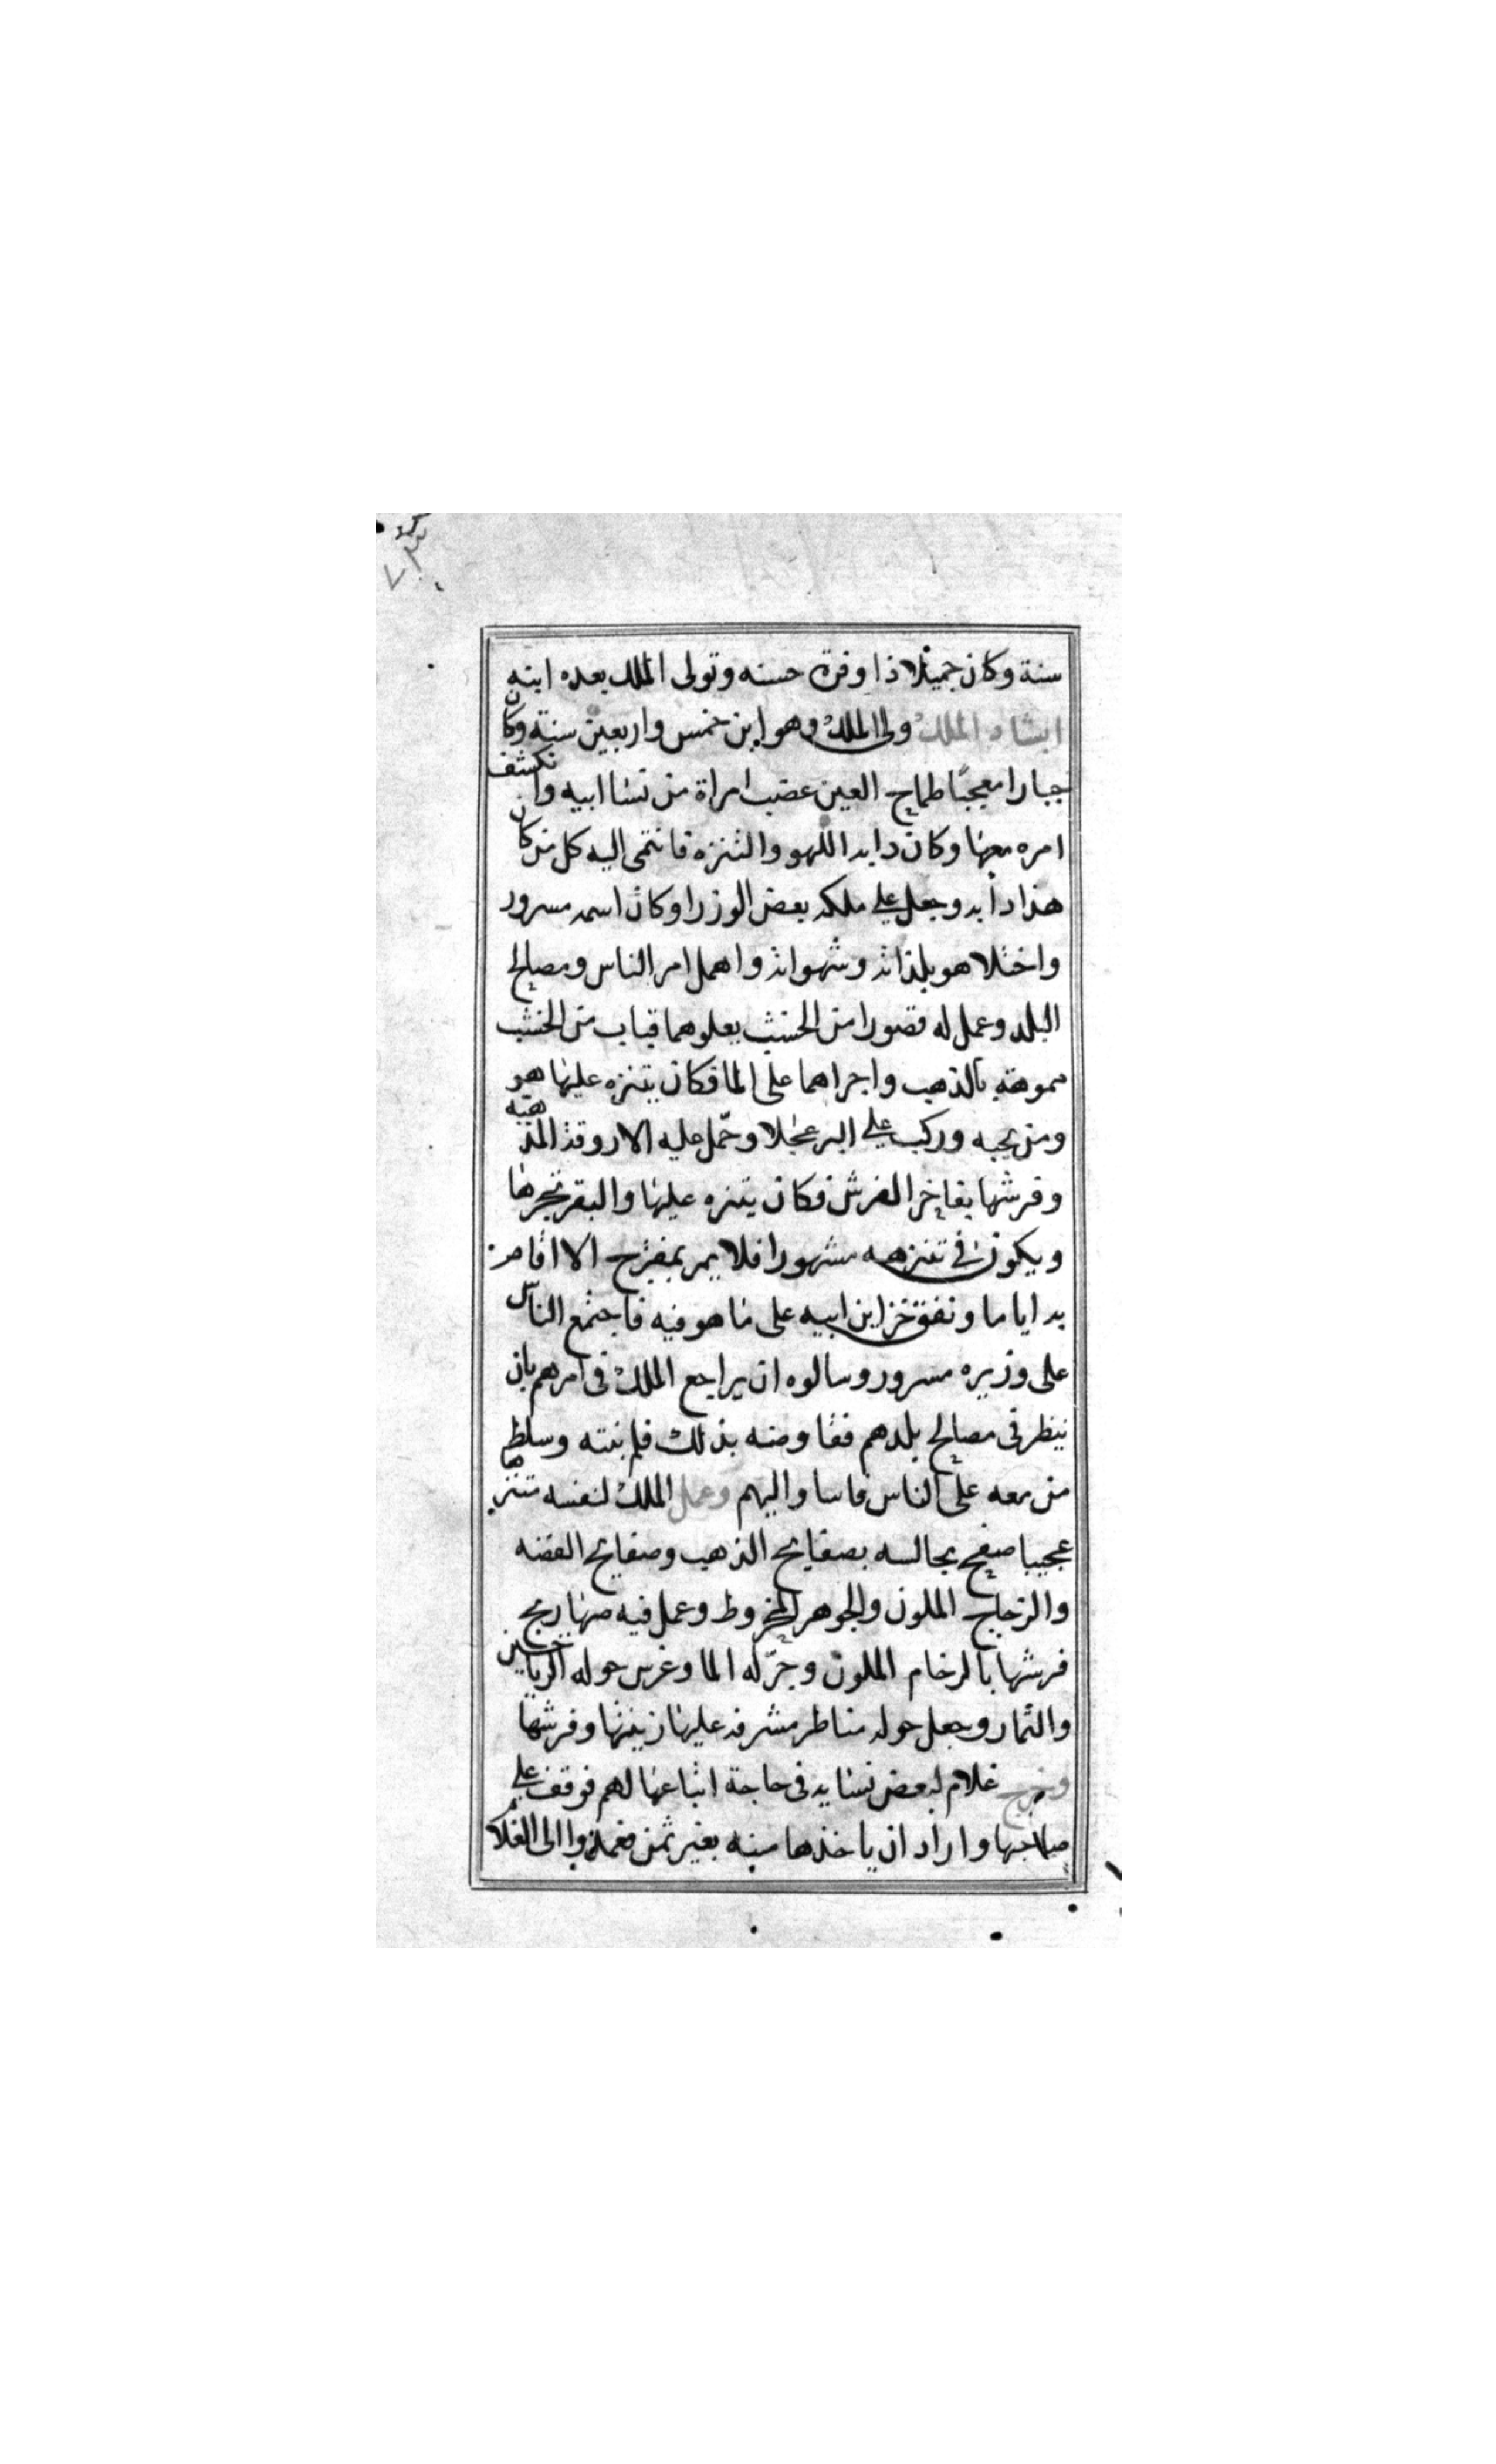 سنة وكان جميلا ذا وفرة حسنه وتولى الملك بعده ابنه
ابشاد الملك ولى الملك وهو ابن خمس واربعين سنة وكان
جبارا معجبا طماح العين غضب امراة من نسا ابيه وانكشف
امره معها وكان دابه اللهو والتنزه فانتمى اليه كل من كان
هذا دأبه وجعل على ملكه بعض الوزرا وكان اسمه مسرور
واختلا هو بلذاته وشهواته واهمل امر الناس ومصالح
البلد وعمل له قصورا من الخشب يعلوهما قباب من الخشب
مموهة بالذهب واجراهما على الما فكان يتنزه عليها هو
ومن يحبه وركب على البر عجلا وحمل عليه الاروقة المذهبة
وفرشها بفاخر الفرش فكان يتنزه عليها والبقر تجرها
ويكون في تنزهه مشهورا فلا يمر بمفترج الا اقام
به اياما ونفق خزاين ابيه على ما هو فيه فاجتمع الناس
على وزيره مسرور وسالوه ان يراجع الملك فى امرهم بان
ينظر فى مصالح بلدهم ففاوضه بذلك فلم ينته وسلط
من معه على الناس فاساوا اليهم وعمل الملك لنفسه متنزها
عجيبا صفح مجالسه بصفايح الذهب وصفايح الفضه
والزجاج الملون والجوهر المخروط وعمل فيه صهاريج
فرشها بالرخام الملون وجر له الما وغرس حوله الرياحين
والثمار وجعل حوله مناظر مشرفه عليها زينها وفرشها
وخرج غلام لبعض نسايه فى حاجة ابتاعها لهم فوقف على
صاحبها واراد ان ياخذها منه بغير ثمن الى الغلا